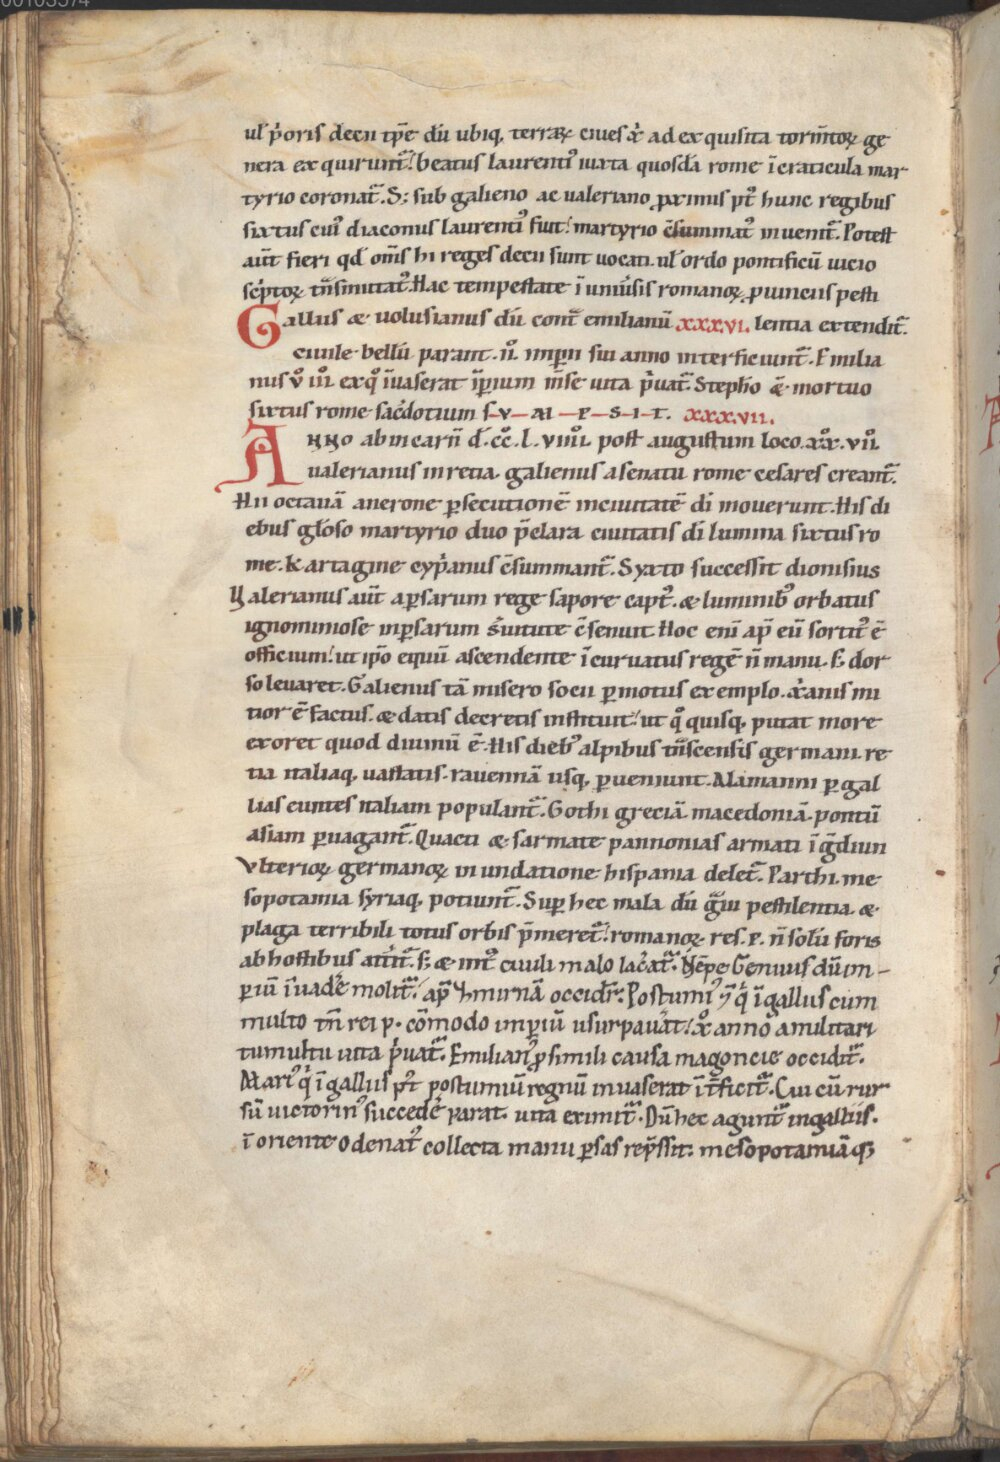 ul p̓oris decii tp̄e dū ubiq, terrarꝝ ciues x̓ ad exquisita torm̄torꝝ ge
nera exquirunt᷑! beatus laurentiꝰ iuxta quosdā rome ī craticula mar
tyrio coronat᷑. S; sub galieno ac ualeriano ꝓximus pꝰt hunc regibus
sixtus cuiꝰ diaconus laurentiꝰ fuit! martyrio c̄summatꝰ inuenit᷑. Potest
aūt fieri qd̓ om̄s hi reges decii sunt uocati. ul̓ ordo pontificū uicio
sc̓ptorꝝ tn̄smutat᷑. Hac tempestate ī uniu̓sis romanorꝝ ꝓuinciis pesti
Gallus & uolusianus dū cont᷑ emilianū xxx.vi. lentia extendit᷑.
ciuile bellū parant. II. imꝑii sui anno interficiunt᷑. Emilia
nus v̊ III. ex q̊ īuaserat īꝑium m̄se uita p̓uat᷑. Stepho & mortuo
sixtus rome sac̓dotium S-V-M-P-S-I-T. xxx.vii.
Anno ab incarn̄ d̄. cc̊. l. viiii. post augustum loco. xx̊x. vii.
ualerianus in retia. galienus a senatu rome cesares creant᷑.
Hii octauā a nerone ꝑsecutionē in ciuitatē di mouerunt. His di
ebus gl̓oso martyrio duo p̄clara ciuitatis di lumina sixtus ro
me. Kartagine cyp̓anus c̄summant᷑. Syxto successit dionisius
Ualerianus aūt a ꝑsarum rege sapore captꝰ. & luminibꝰ orbatus
ignominiose in ꝑsarum s̓uitute c̄senuit. Hoc eni ap̄ eū sortitꝰ ē
officium! ut ip̄o equū ascendente ī curuatus regē n̄ manu. S; dor
so leuaret. Galienus tā misero socii ꝑmotus exemplo. x̓anis mi
tior ē factus. & datis decretis instituit! ut q̊ quisq, putat more
exoret quod diuinū ē. His diebꝰ alpibus tn̄scensis germani. re
tia italiaq, uastatis. rauennā usq, ꝑueniunt. Alamanni ꝑ gal
lias euntes italiam populant᷑. Gothi greciā. macedoniā. pontū
asiam ꝑuagant᷑. Quadi & sarmate pannonias armati īg̓diun
Vlteriorꝝ germanorꝝ inundatione hispania delet᷑. Parthi. me
sopotamia syriaq, potiunt᷑. Suꝑ hec mala dū g̓ui pestilentia. &
plaga terribili totus orbis p̄meret᷑! romanorꝝ res. P. n̄ solū foris
ab hostibus atit᷑. S; & intꝰ ciuili malo lac̓at᷑. Nēpe Genuus dū im-
ꝑiū īuad̓e molit᷑! ap̄ ymirnā occidit᷑. Postumiꝰ ȳ q̓ ī gallus cum
multo tn̄ rei p. cōmodo imꝑiū usurpauat! x̊ anno a militari
tumultu uita p̓uat᷑. Emilianꝰ ꝓ simili causa magoncie occidit᷑.
Mariꝰ q̓ ī gallus pꝰt postumiū regnū inuaserat īt̓ficit᷑. Cui cū rur
sū uictorinꝰ succed̓e parat. uita eximit᷑. Dū hec agunt᷑ in galliis.
ī oriente odenatꝰ collecta manu ꝑsas rep̄ssit. mesopotamiāq,